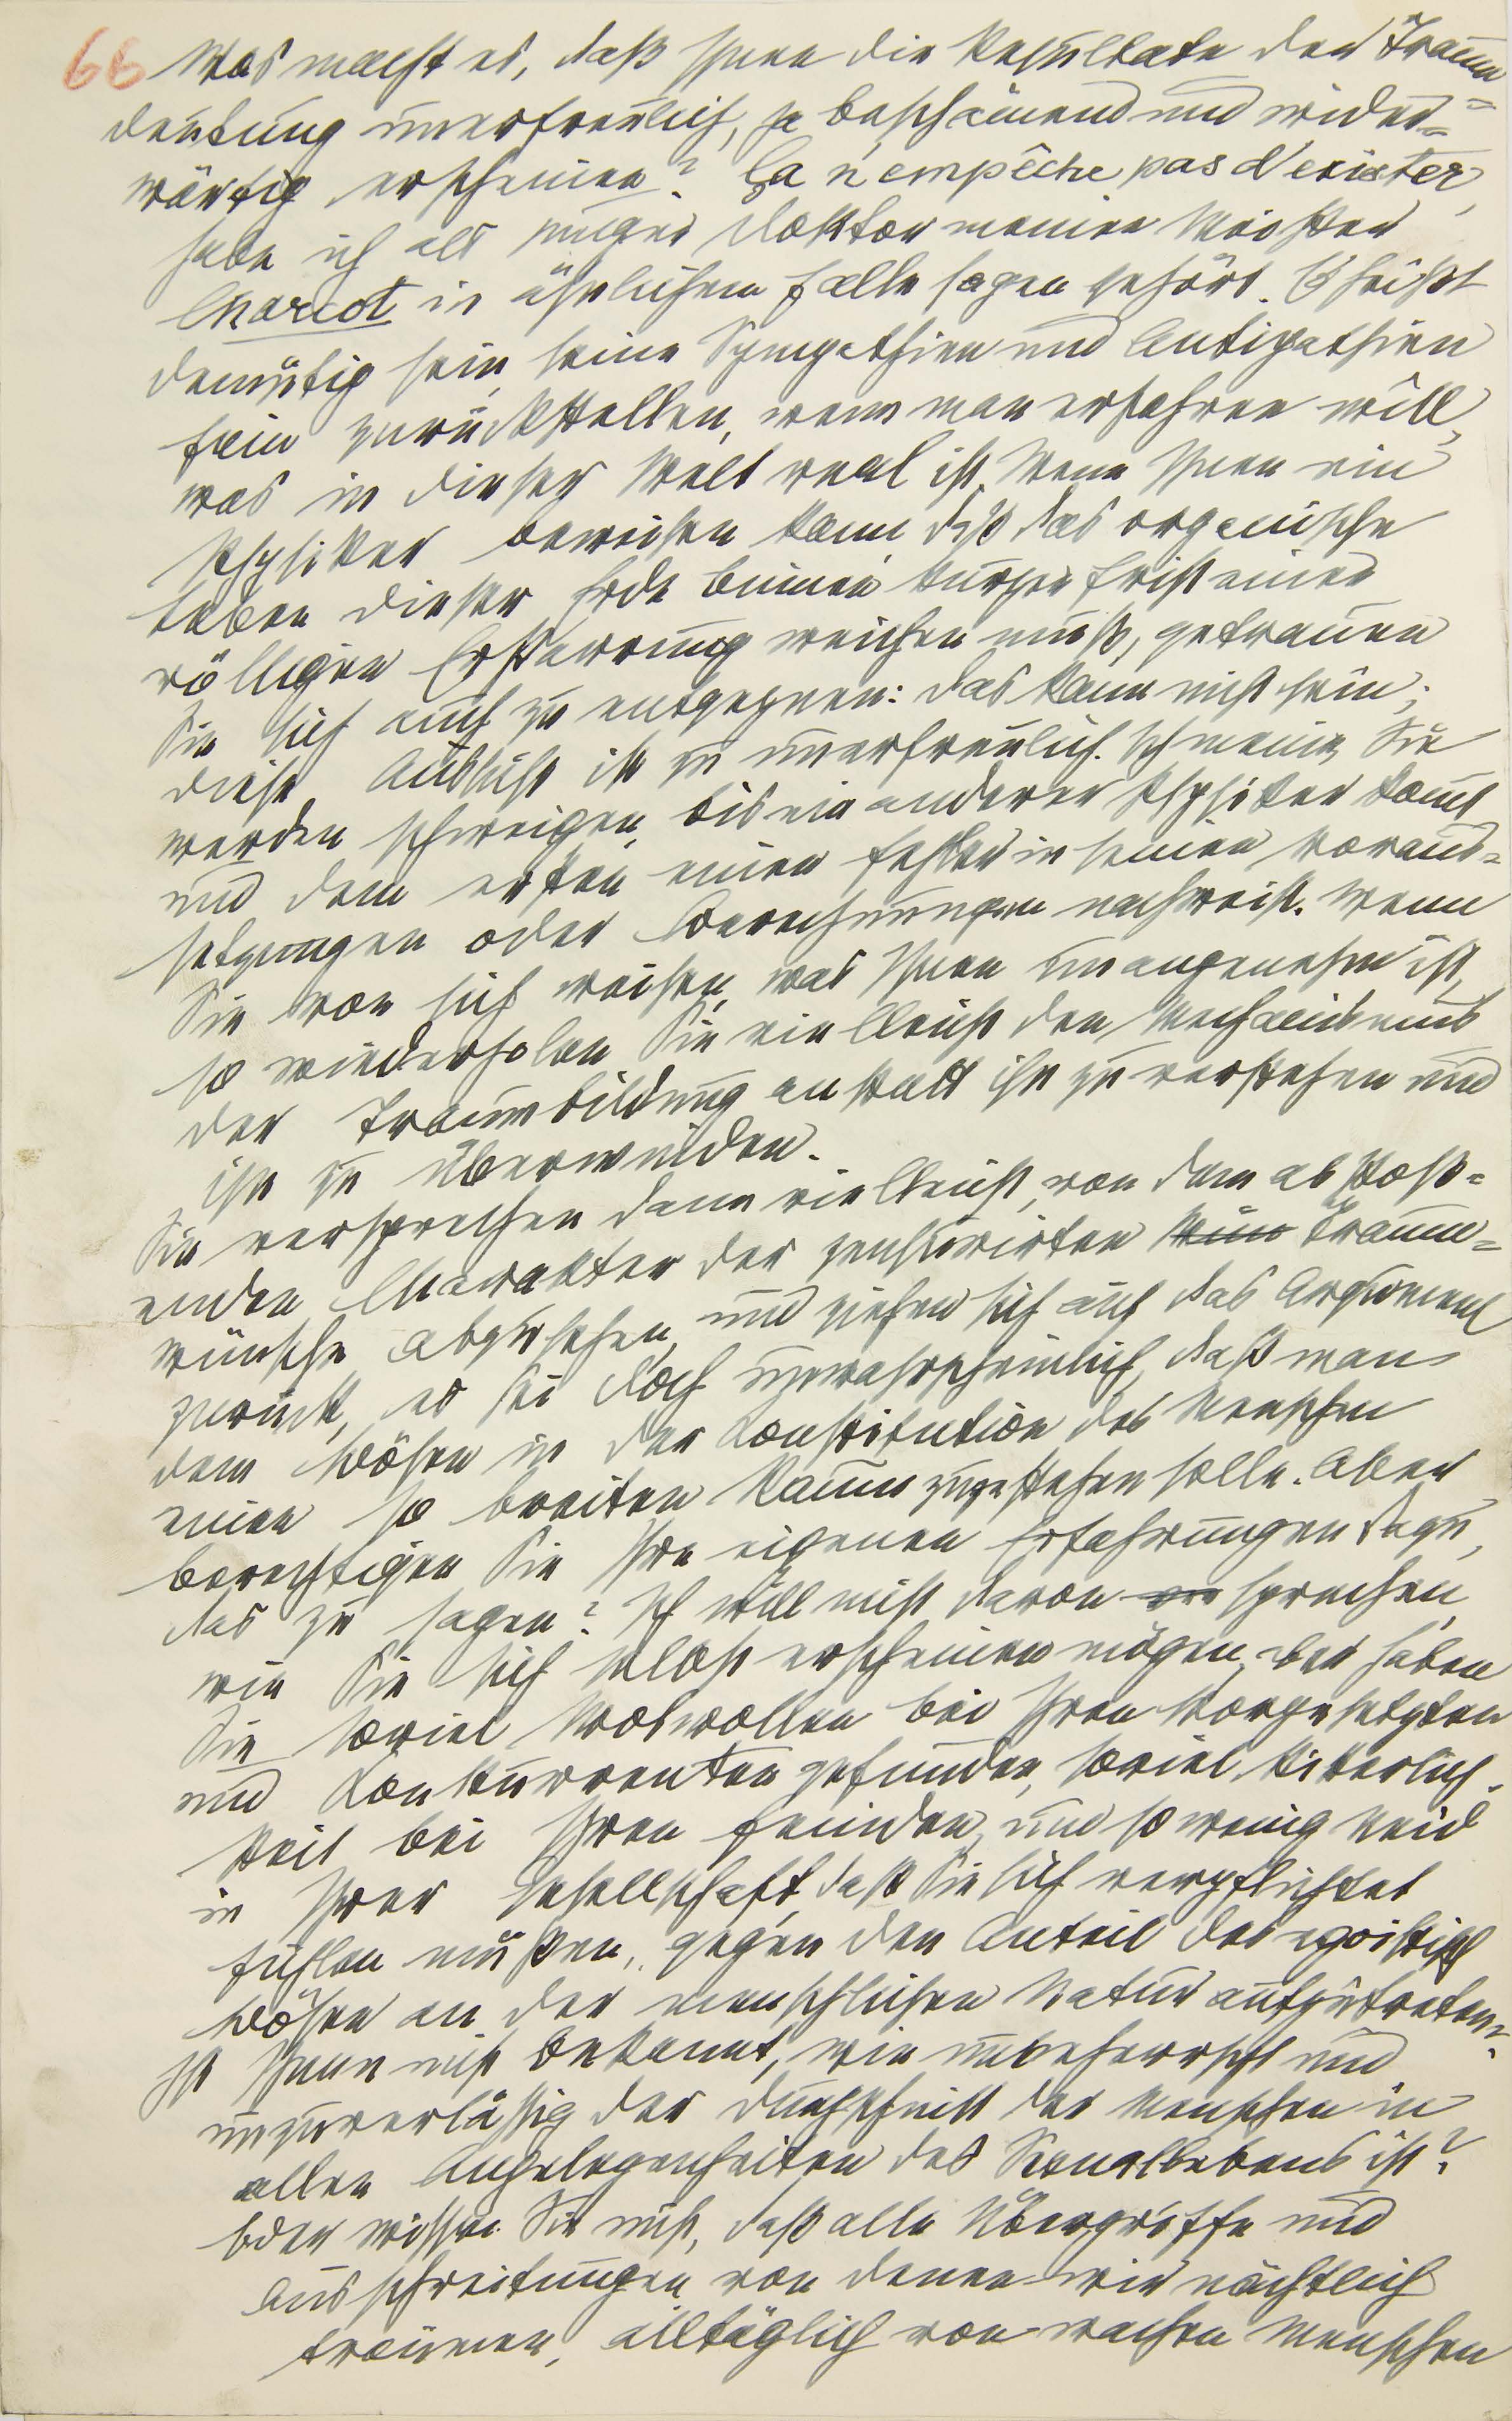 66 Was macht es, daß Ihnen die Resultate der Traum=
deutung unerfreulich, ja beschämend und wider=
wärtig erscheinen? Ça n'empêche pas d'exister,
habe ich als junger Doktor meinen Meister
Charcot in ähnlichem Falle sagen gehört. Es heißt
demütig sein, seine Sympathien und Antipathien
fein zurückstellen, wenn man erfahren will,
was in dieser Welt real ist. Wenn Ihnen ein
Physiker beweisen kann, daß das organische
Leben dieser Erde binnen kurzer Frist einer
völligen Erstarrung weichen muß, getrauen
Sie sich auch zu entgegnen: Das kann nicht sein;
diese Aussicht ist zu unerfreulich. Ich meine, Sie
werden schweigen, bis ein anderer Physiker kommt
und dem ersten einen Fehler in seinen Voraus=
setzungen oder Berechnungen nachweist. Wenn
Sie von sich weisen, was Ihnen unangenehm ist,
so wiederholen Sie vielleicht den Mechanismus
der Traumbildung anstatt ihn zu verstehen und
ihn zu überwinden.
Sie versprechen dann vielleicht, von dem abstoß=
enden Charakter der zensurirten Traum=
wünsche abzusehen, und ziehen sich auf das Argument
zurück, es sei doch unwahrscheinlich, daß man
dem Bösen in der Konstitution des Menschen
einen so breiten Raum zugestehen solle. Aber
berechtigen Sie Ihre eigenen Erfahrungen dazu,
das zu sagen? Ich will nicht davon sprechen,
wie Sie sich selbst erscheinen mögen, aber haben
Sie soviel Wolwollen bei Ihren Vorgesetzten
und Konkurrenten gefunden, soviel Ritterlich=
keit bei Ihren Feinden, und so wenig Neid
in Ihrer Gesellschaft, daß Sie sich verpflichtet
fühlen müßen, gegen den Anteil des egoistisch
Bösen an der menschlichen Natur aufzutreten?
Ist Ihnen nicht bekannt, wie unbeherrscht und
unzuverläßig der Durchschnitt der Menschen in
allen Angelegenheiten des Sexuallebens ist?
Oder wissen Sie nicht, daß alle Übergriffe und
Ausschreitungen, von denen wir nächtlich
träumen, alltäglich von wachen Menschen